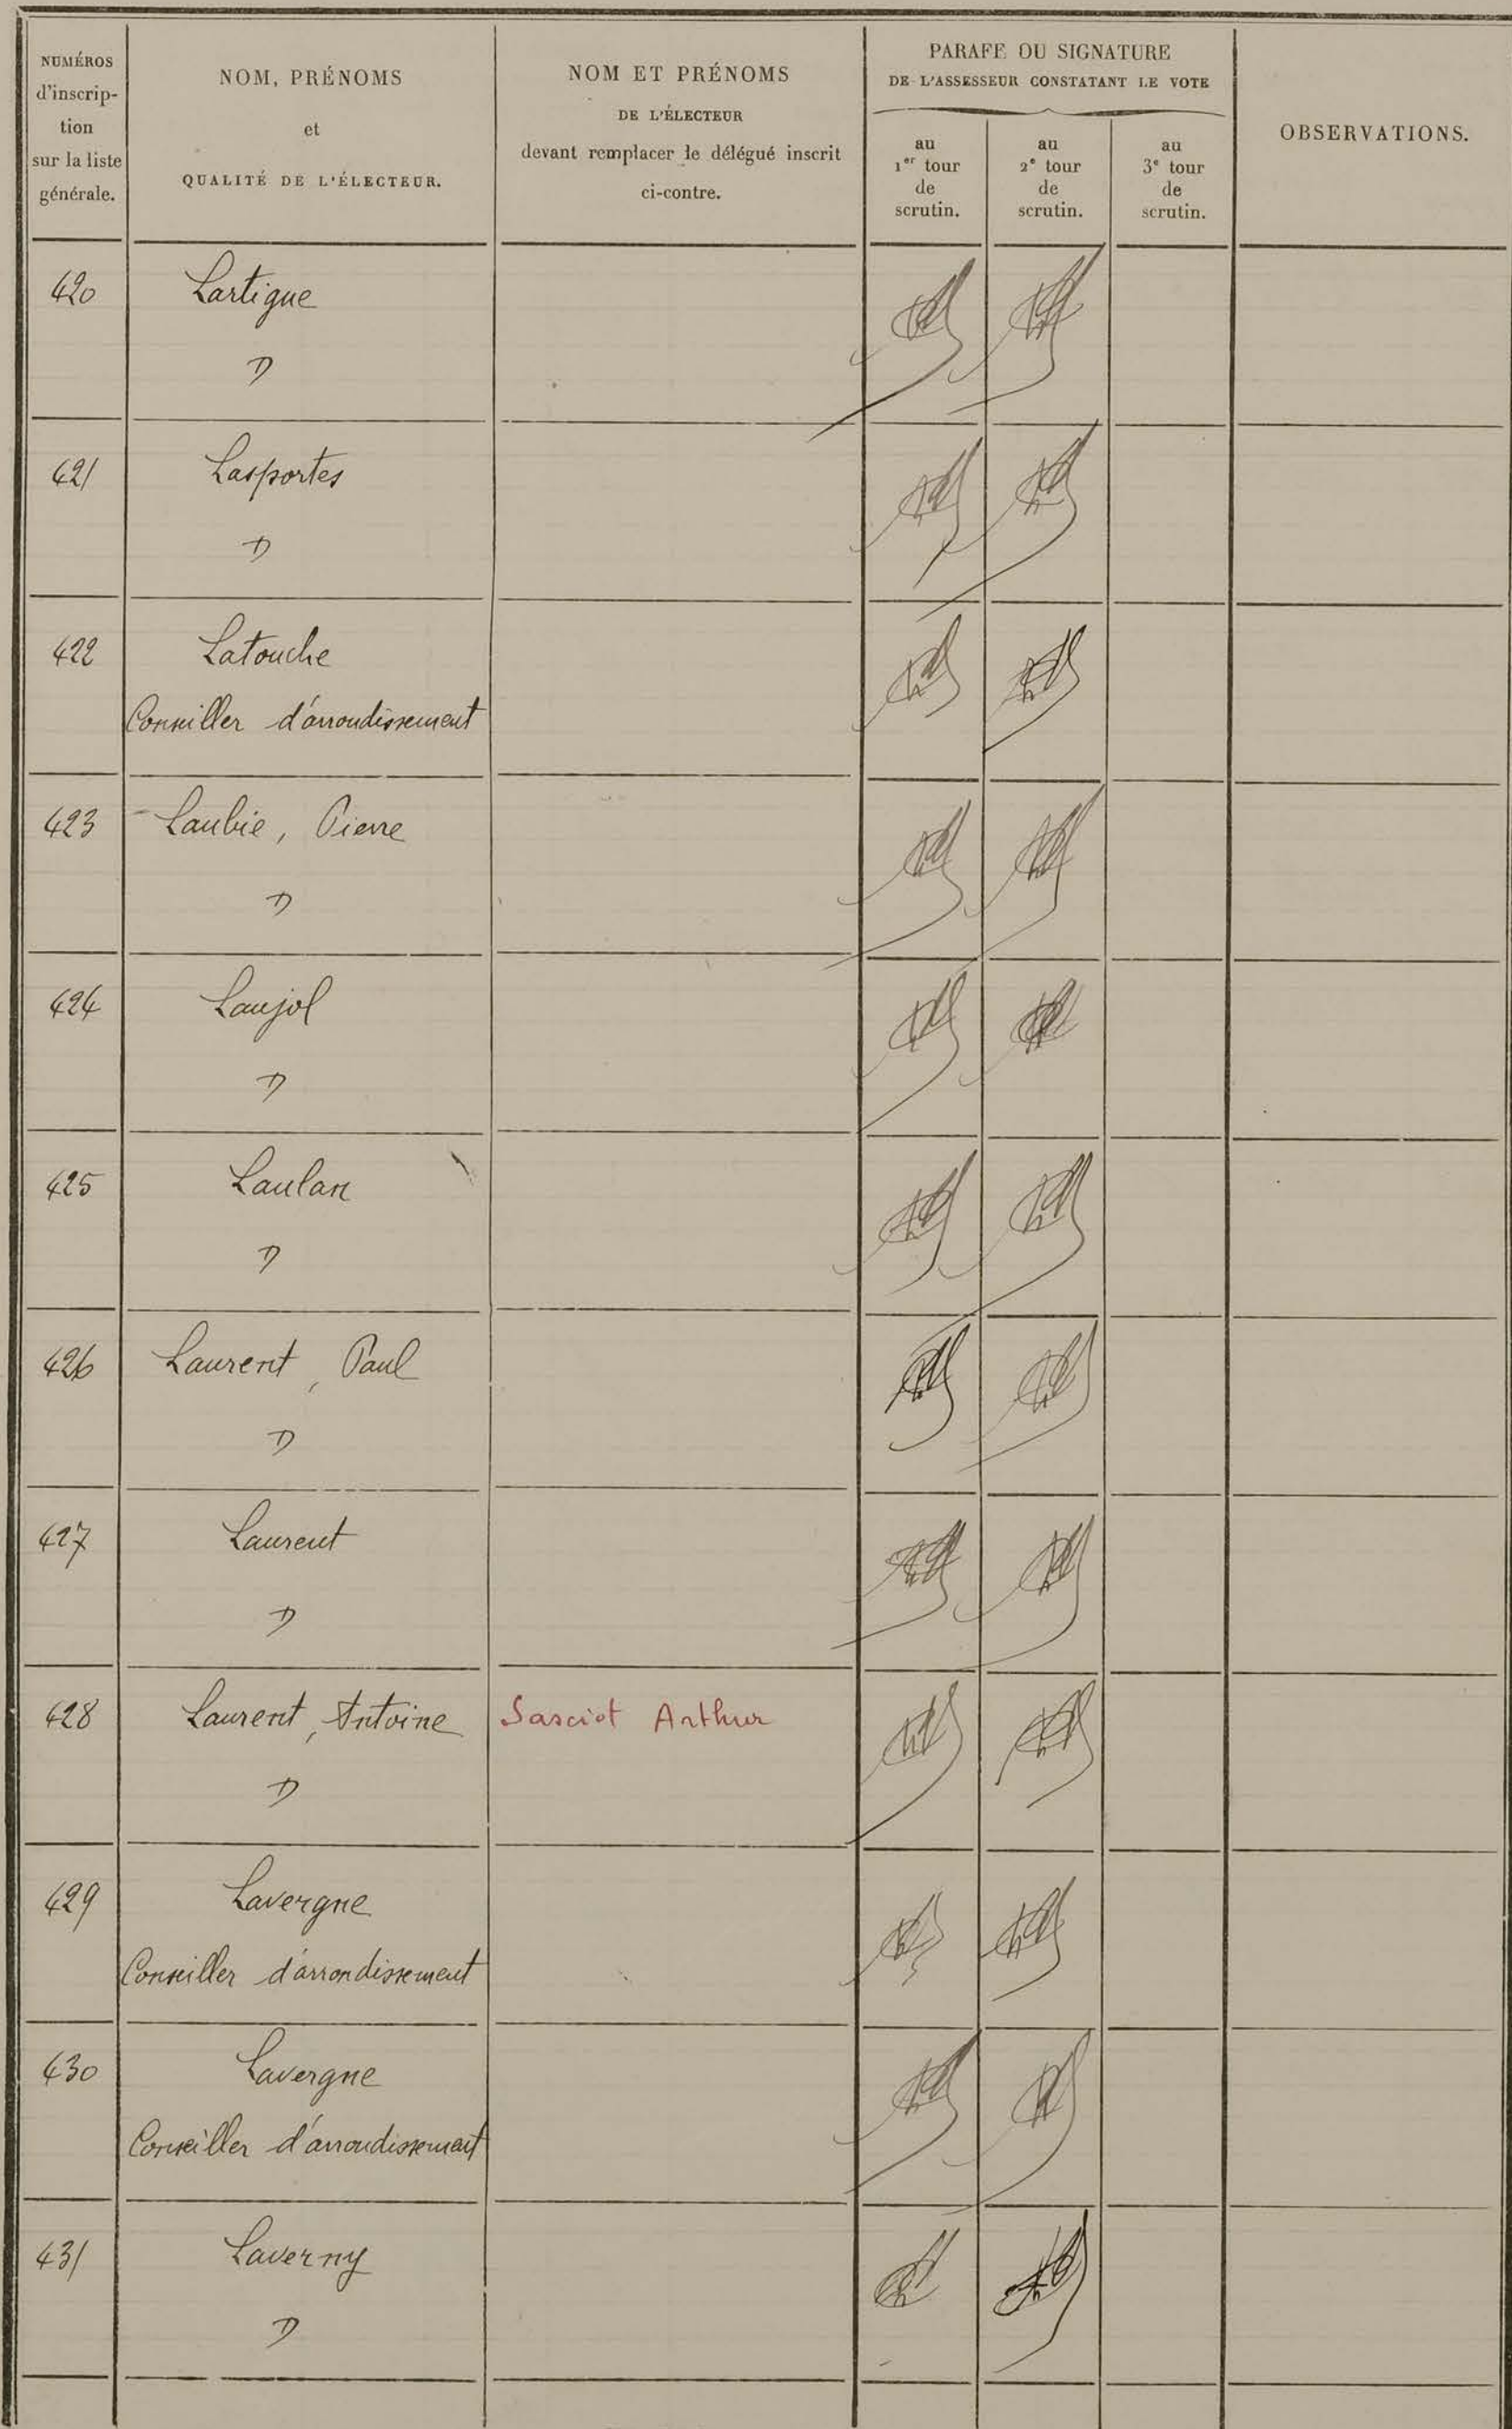 NUMÉROS
d'inscrip-
tion
sur la liste
générale.
NOM, PRÉNOMS
et
QUALITÉ DE L'ÉLECTEUR.
NOM ET PRÉNOMS
DE L'ÉLECTEUR
devant remplacer le délégué inscrit
ci-contre.
PARAFE OU SIGNATURE
DE L'ASSESSEUR CONSTATANT LE VOTE
au
1er tour
de
scrutin.
au
2e tour
de
scrutin.
au
3e tour
de
scrutin.
OBSERVATIONS.
420 Lartigue
D
421 Lasportes
D
422 Latouche
Conseiller d'arrondissement
423 Laubie, Pierre
D
424 Laujol
D
425 Laulan
D
426 Laurent, Paul
D
427 Laurent
D
428 Laurent, Antoine Sasciot Arthur
D
429 Lavergne
Conseiller d'arrondissement
430 Lavergne
Conseiller d'arrondissement
431 Laverny
D